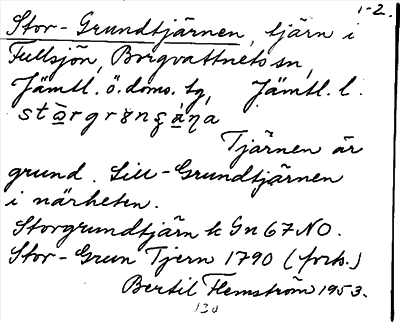 1-2.
Stor-Grundtjärnen, tjärn i
Fullsjön, Borgvattnets sn,
Jämtl. ö. doms. tg, Jämtl. l.
Tjärnen är
grund. Lill-Grundtjärnen
i närheten.
Storgrundtjärn k Gn 67 NO.
Stor-Grun Tjern 1790 (forts.)
Bertil Flemström 1953.